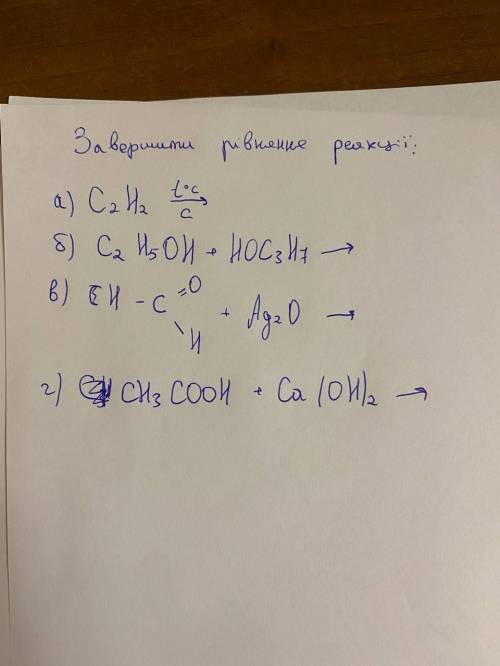 Завершити рівняння реакції:
а) C₂H₂ t°C C →
б) C₂H₅OH + HOC₃H₇ →
в) CH - C =O \ H + Ag₂O →
г) CH₃COOH + Ca(OH)₂ →